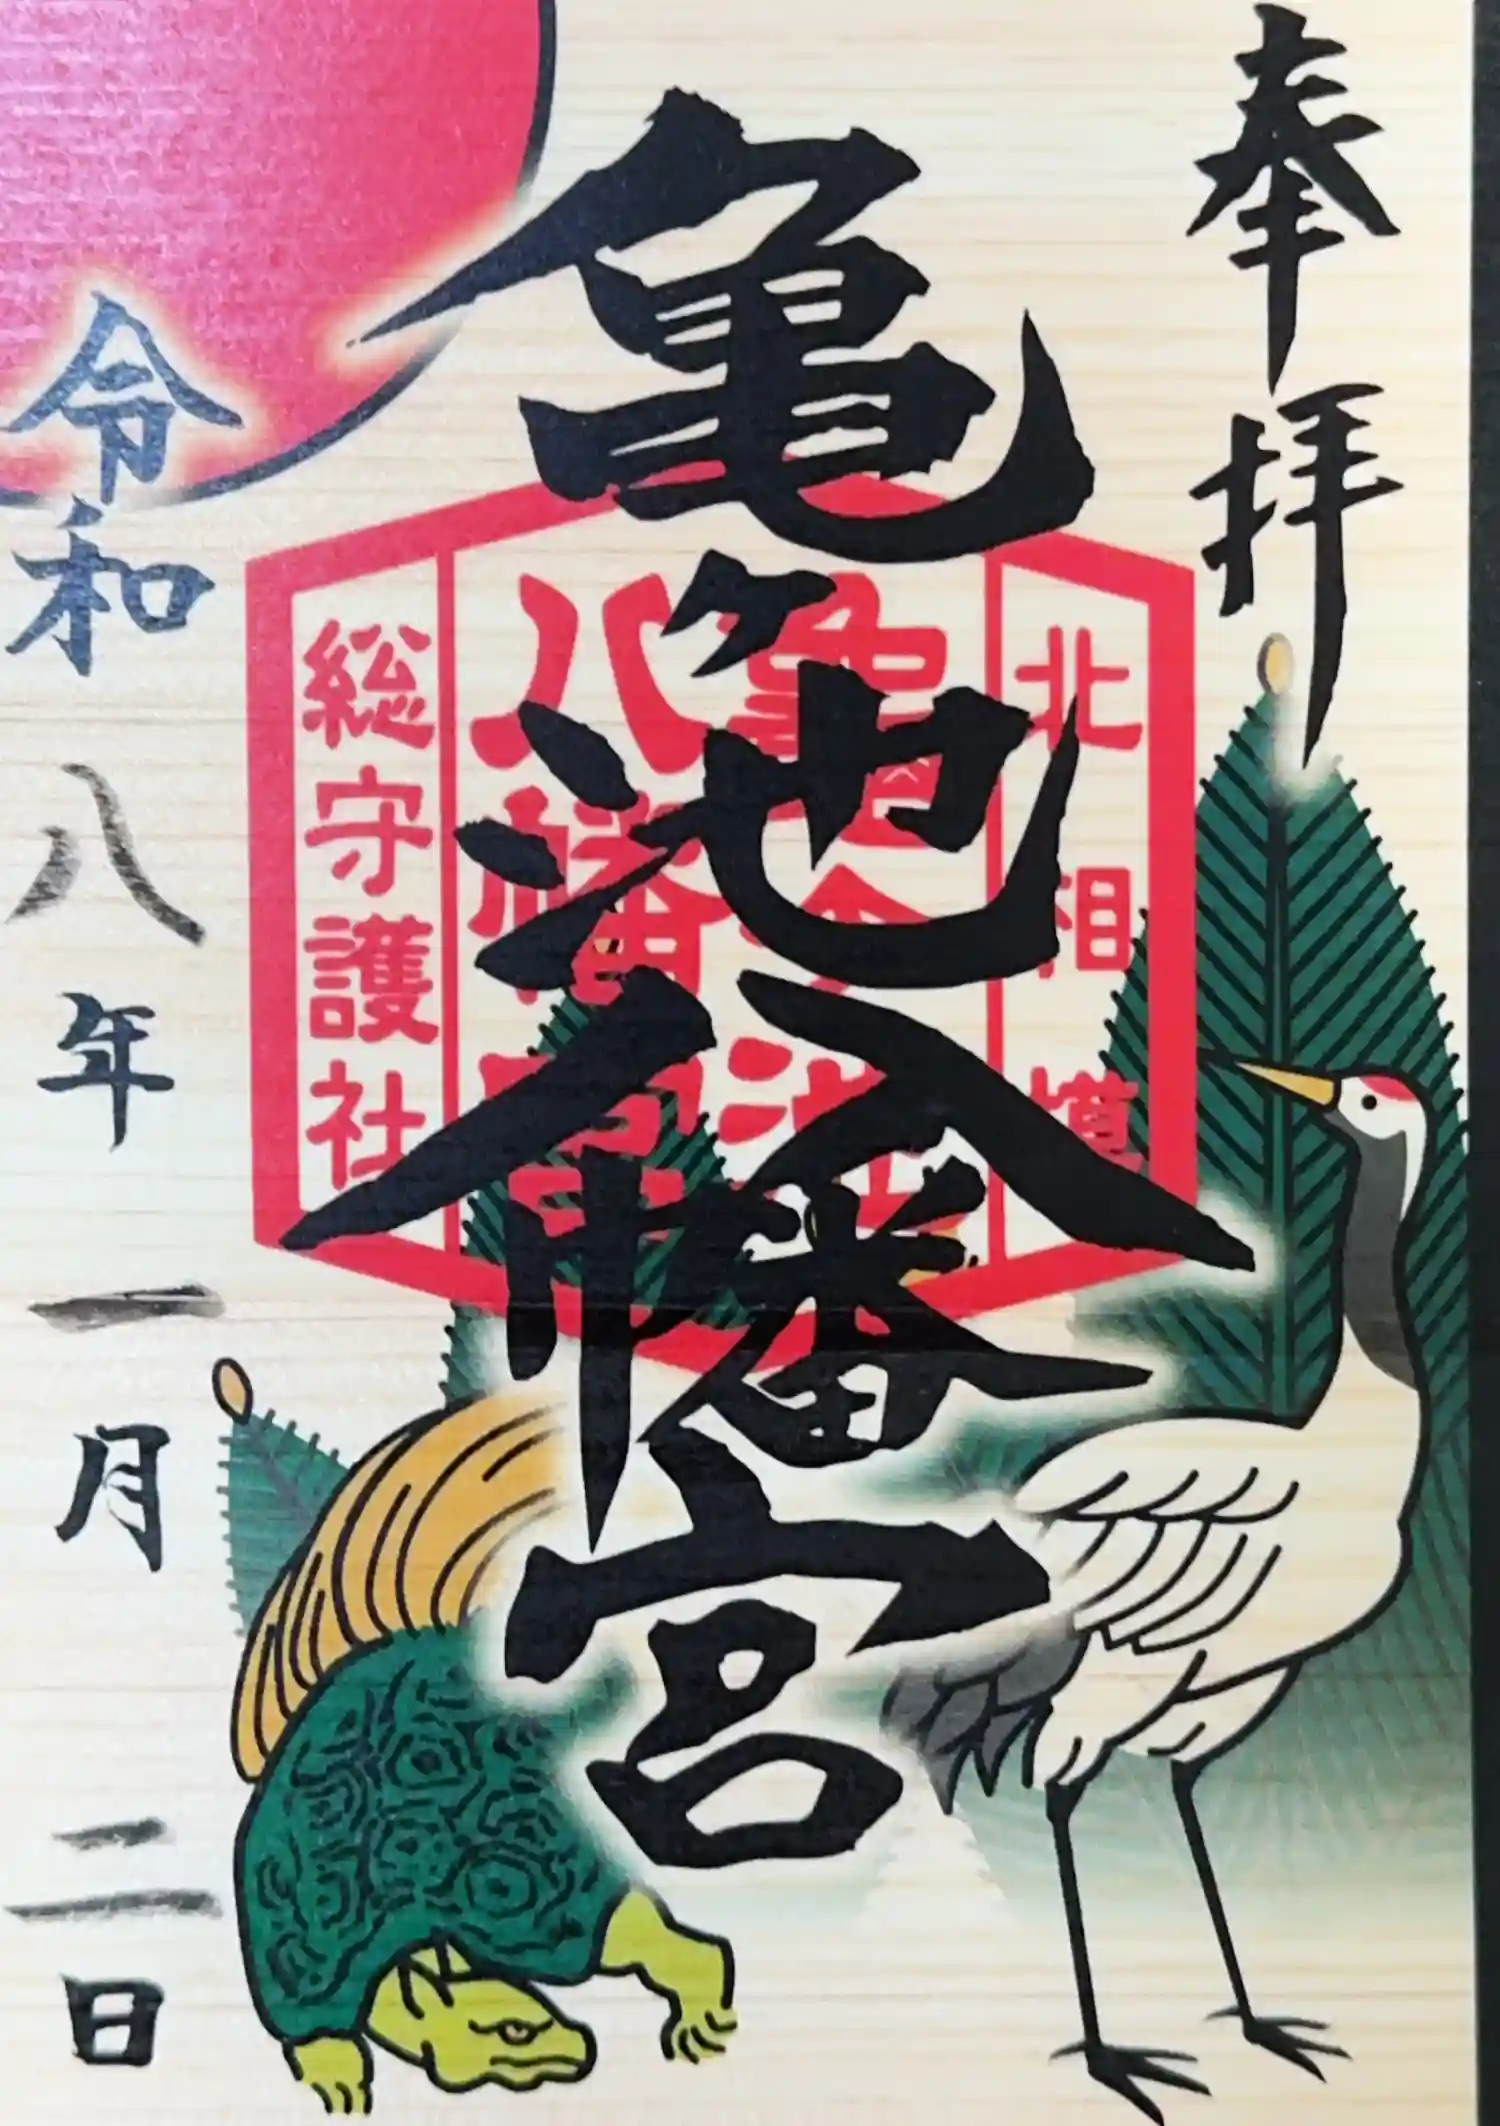 奉拝
亀ヶ池八幡宮
北相模
亀ヶ池
八幡宮
総守護社
令和八年一月二日